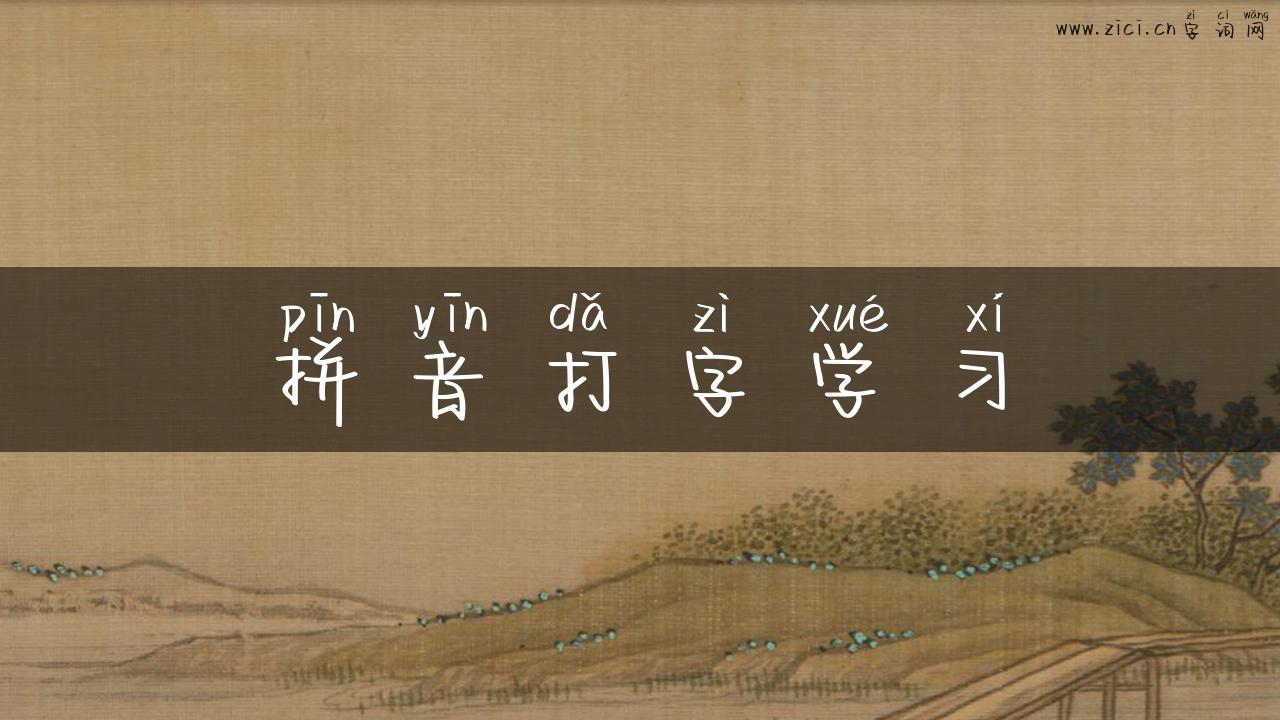 zì cí wǎng
www.zici.cn 字词网
pīn yīn dǎ zì xué xí
拼音打字学习